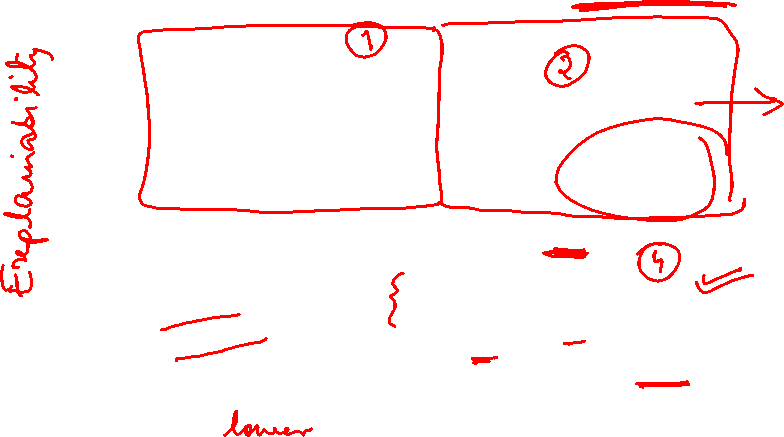 Explainability
1
2
4
lower